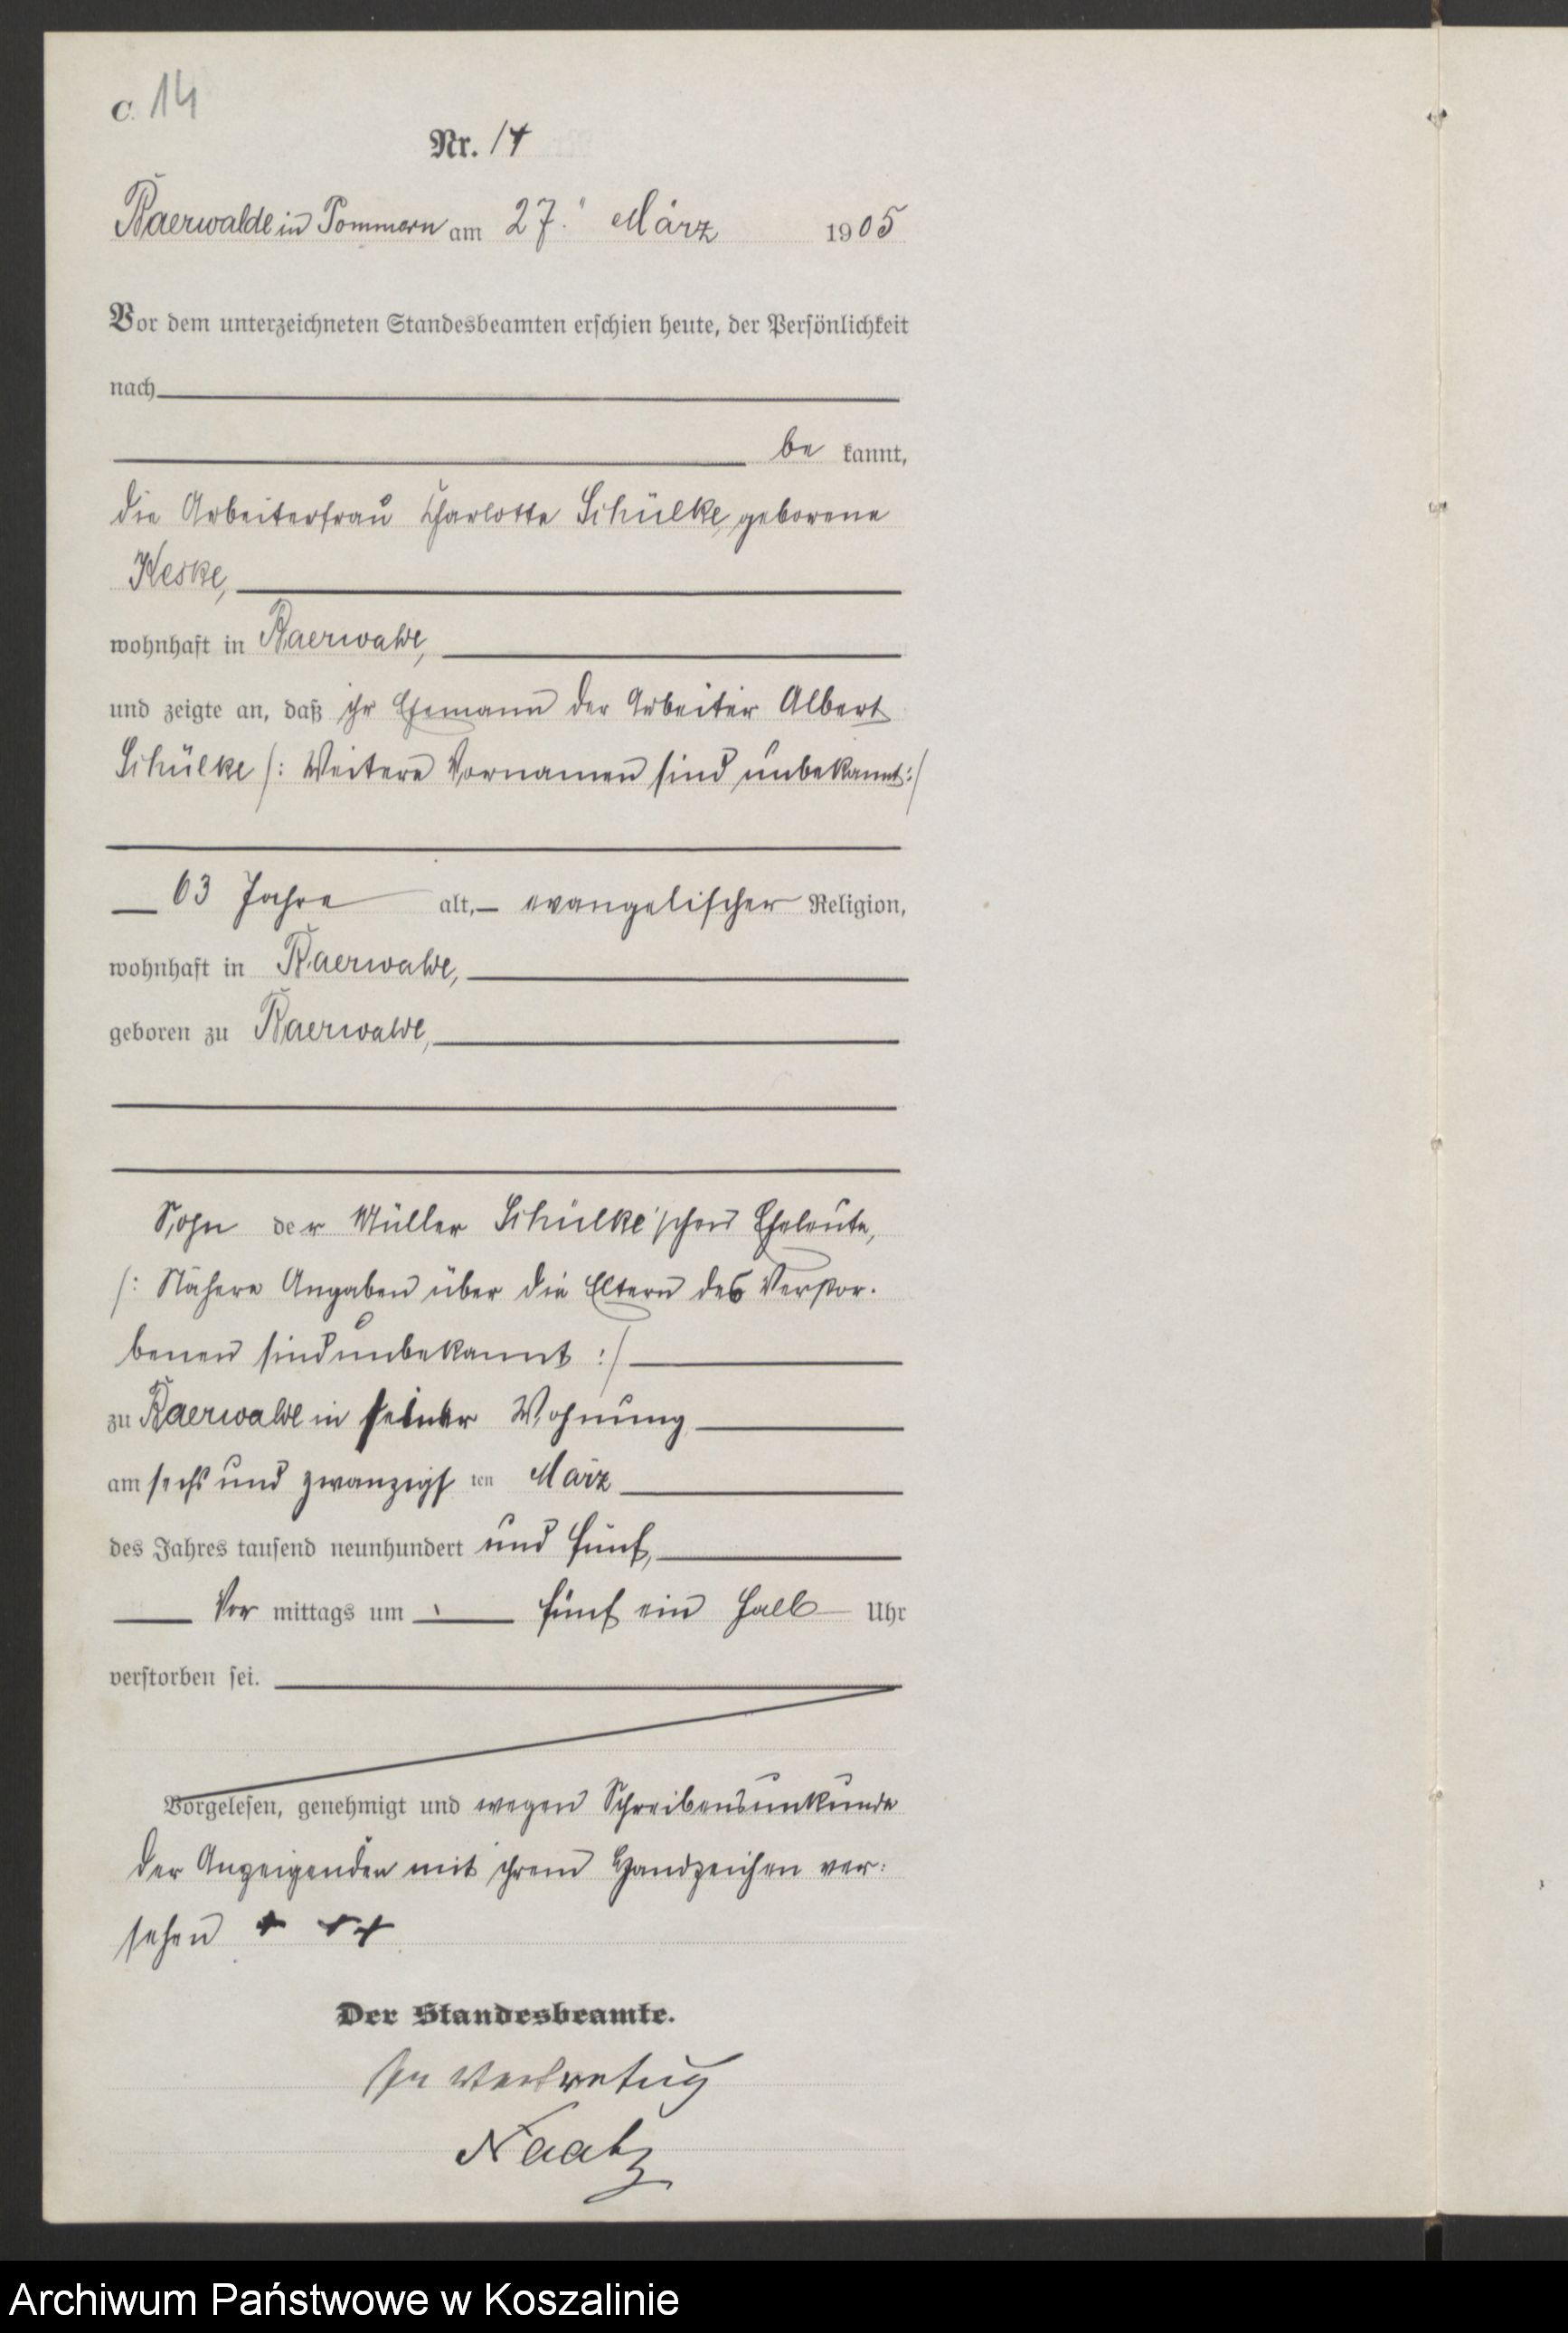 C. 14
Nr. 14
Baerwalde in Pommern am 27. März 1905
Vor dem unterzeichneten Standesbeamten erschien heute, der Persönlichkeit
nach
be kannt,
die Arbeiterfrau Charlotte Schülke geborene
Keske,
wohnhaft in Baerwalde,
und zeigte an, daß ihr Ehemann der Arbeiter Albert
Schülke /: Weitere Vornamen sind unbekannt :/
63 Jahre alt, evangelischer Religion,
wohnhaft in Baerwalde,
geboren zu Baerwalde,
Sohn der Müller Schülke'schen Eheleute,
/: Nähere Angaben über die Eltern des Verstor-
benen sind unbekannt :/
zu Baerwalde in seiner Wohnung
am sechs und zwanzigs ten März
des Jahres tausend neunhundert und fünf,
Vor mittags um fünf ein halb Uhr
verstorben sei.
Vorgelesen, genehmigt und wegen Schreibensunkunde
der Anzeigenden mit ihrem Handzeichen ver:
sehen + ++
Der Standesbeamte.
In Vertretung
Naatz
Archiwum Państwowe w Koszalinie